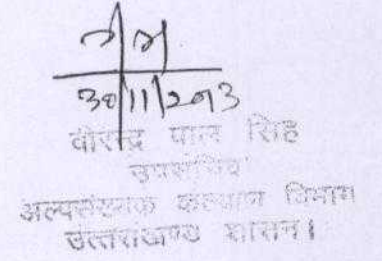 30/11/2013
वीरेन्द्र पाल सिंह
उपसचिव
अल्पसंख्यक कल्याण विभाग
उत्तराखण्ड शासन।